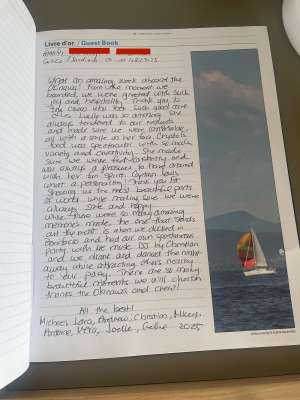 Livre d'or / Guest Book
What an amazing week aboard the
Okinawa! From the moment we
boarded, we were greeted with such
joy and hospitality. Thank you to
the crew who took such good care
of us. Lucile was so amazing. She
always tended to our needs
and made sure we were comfortable,
all with a smile on her face. Crystal's
food was spectacular with so much
variety and creativity. She made
sure we were
was always a pleasure to hang around
with her fun spirit. Captain Louis,
what a personality! Thank you for
showing us the most beautiful parts
of while making sure we were
always safe and happy.
While there were so many amazing
memories made, the one that stands
out the most is when we docked in
Bonifacio and had our own spontaneous
party with the music DJ by Christian
and we drank and danced the night
away while attracting others nearby
to our party. There are so many
beautiful moments we will cherish
thanks to Okinawa and crew!
All the best!
Michael, Lara, Andrew, Christian,
Vera, Joelle, Gabe 2025